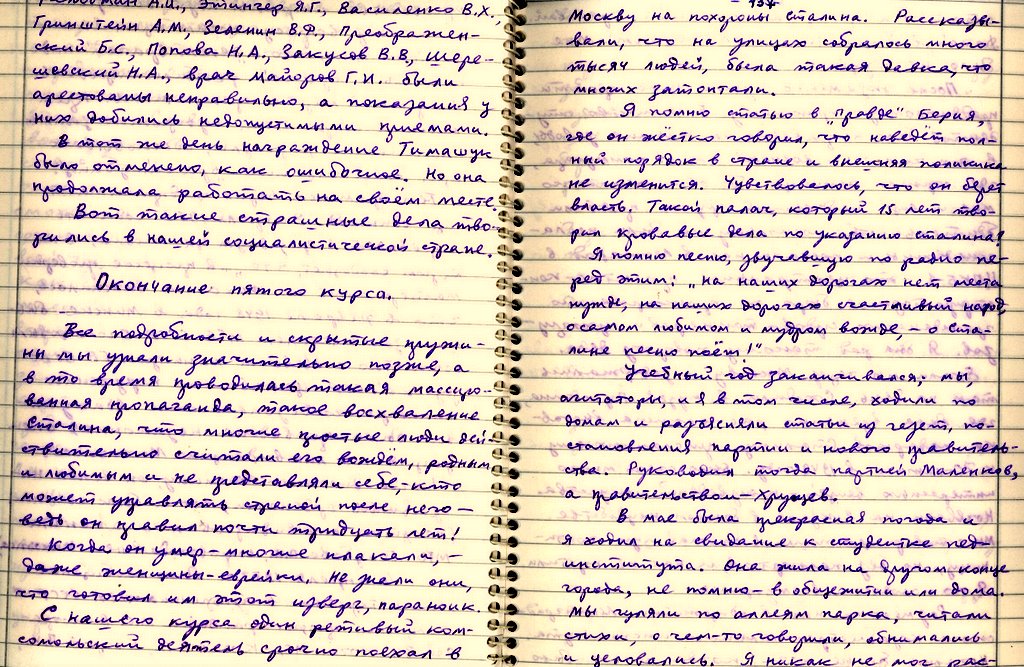 Фельдман А.И., Этингер Я.Г., Василенко В.Х.,
Гринштейн А.М., Зеленин В.Ф., Преображен-
ский Б.С., Попова Н.А., Закусов В.В., Шере-
шевский Н.А., врач Майоров Г.И. были
арестованы неправильно, а показания у
них добились недопустимыми приемами.
В тот же день награждение Тимашук
было отменено, как ошибочное. Но она
продолжала работать на своём месте.
Вот такие страшные дела тво-
рились в нашей социалистической стране.
Окончание пятого курса.
Все подробности и скрытые пружи-
ны мы узнали значительно позже, а
в то время проводилась такая массиро-
ванная пропаганда, такое восхваление
Сталина, что многие простые люди дей-
ствительно считали его вождём, родным
и любимым и не представляли себе,-кто
может управлять страной после него -
ведь он правил почти тридцать лет!
Когда он умер - многие плакали, -
даже женщины-еврейки. Не знали они,
что готовил им этот изверг, параноик.
С нашего курса один ретивый ком-
сомольский деятель срочно поехал в
- 137 -
Москву на похороны Сталина. Рассказы-
вали, что на улицах собралось много
тысяч людей, была такая давка, что
многих затоптали.
Я помню статью в „Правде" Берия,
где он жёстко говорил, что наведёт пол-
ный порядок в стране и внешняя политика
не изменится. Чувствовалось, что он берет
власть. Такой палач, который 15 лет тво-
рил кровавые дела по указанию Сталина!
Я помню песню, звучавшую по радио пе-
ред этим: „на наших дорогах нет места
нужде, на наших дорогах счастливый народ,
о самом любимом и мудром вожде, - о Ста-
лине песню поёт!"
Учебный год заканчивался, мы,
агитаторы, и я в том числе, ходили по
домам и разъясняли статьи из газет, по-
становления партии и нового правитель-
ства. Руководил тогда партией Маленков,
а правительством - Хрущев.
В мае была прекрасная погода и
я ходил на свидание к студентке пед-
института. Она жила на другом конце
города, не помню - в общежитии или дома.
Мы гуляли по аллеям парка, читали
стихи, о чем-то говорили, обнимались
и целовались. Я никак не мог рас-